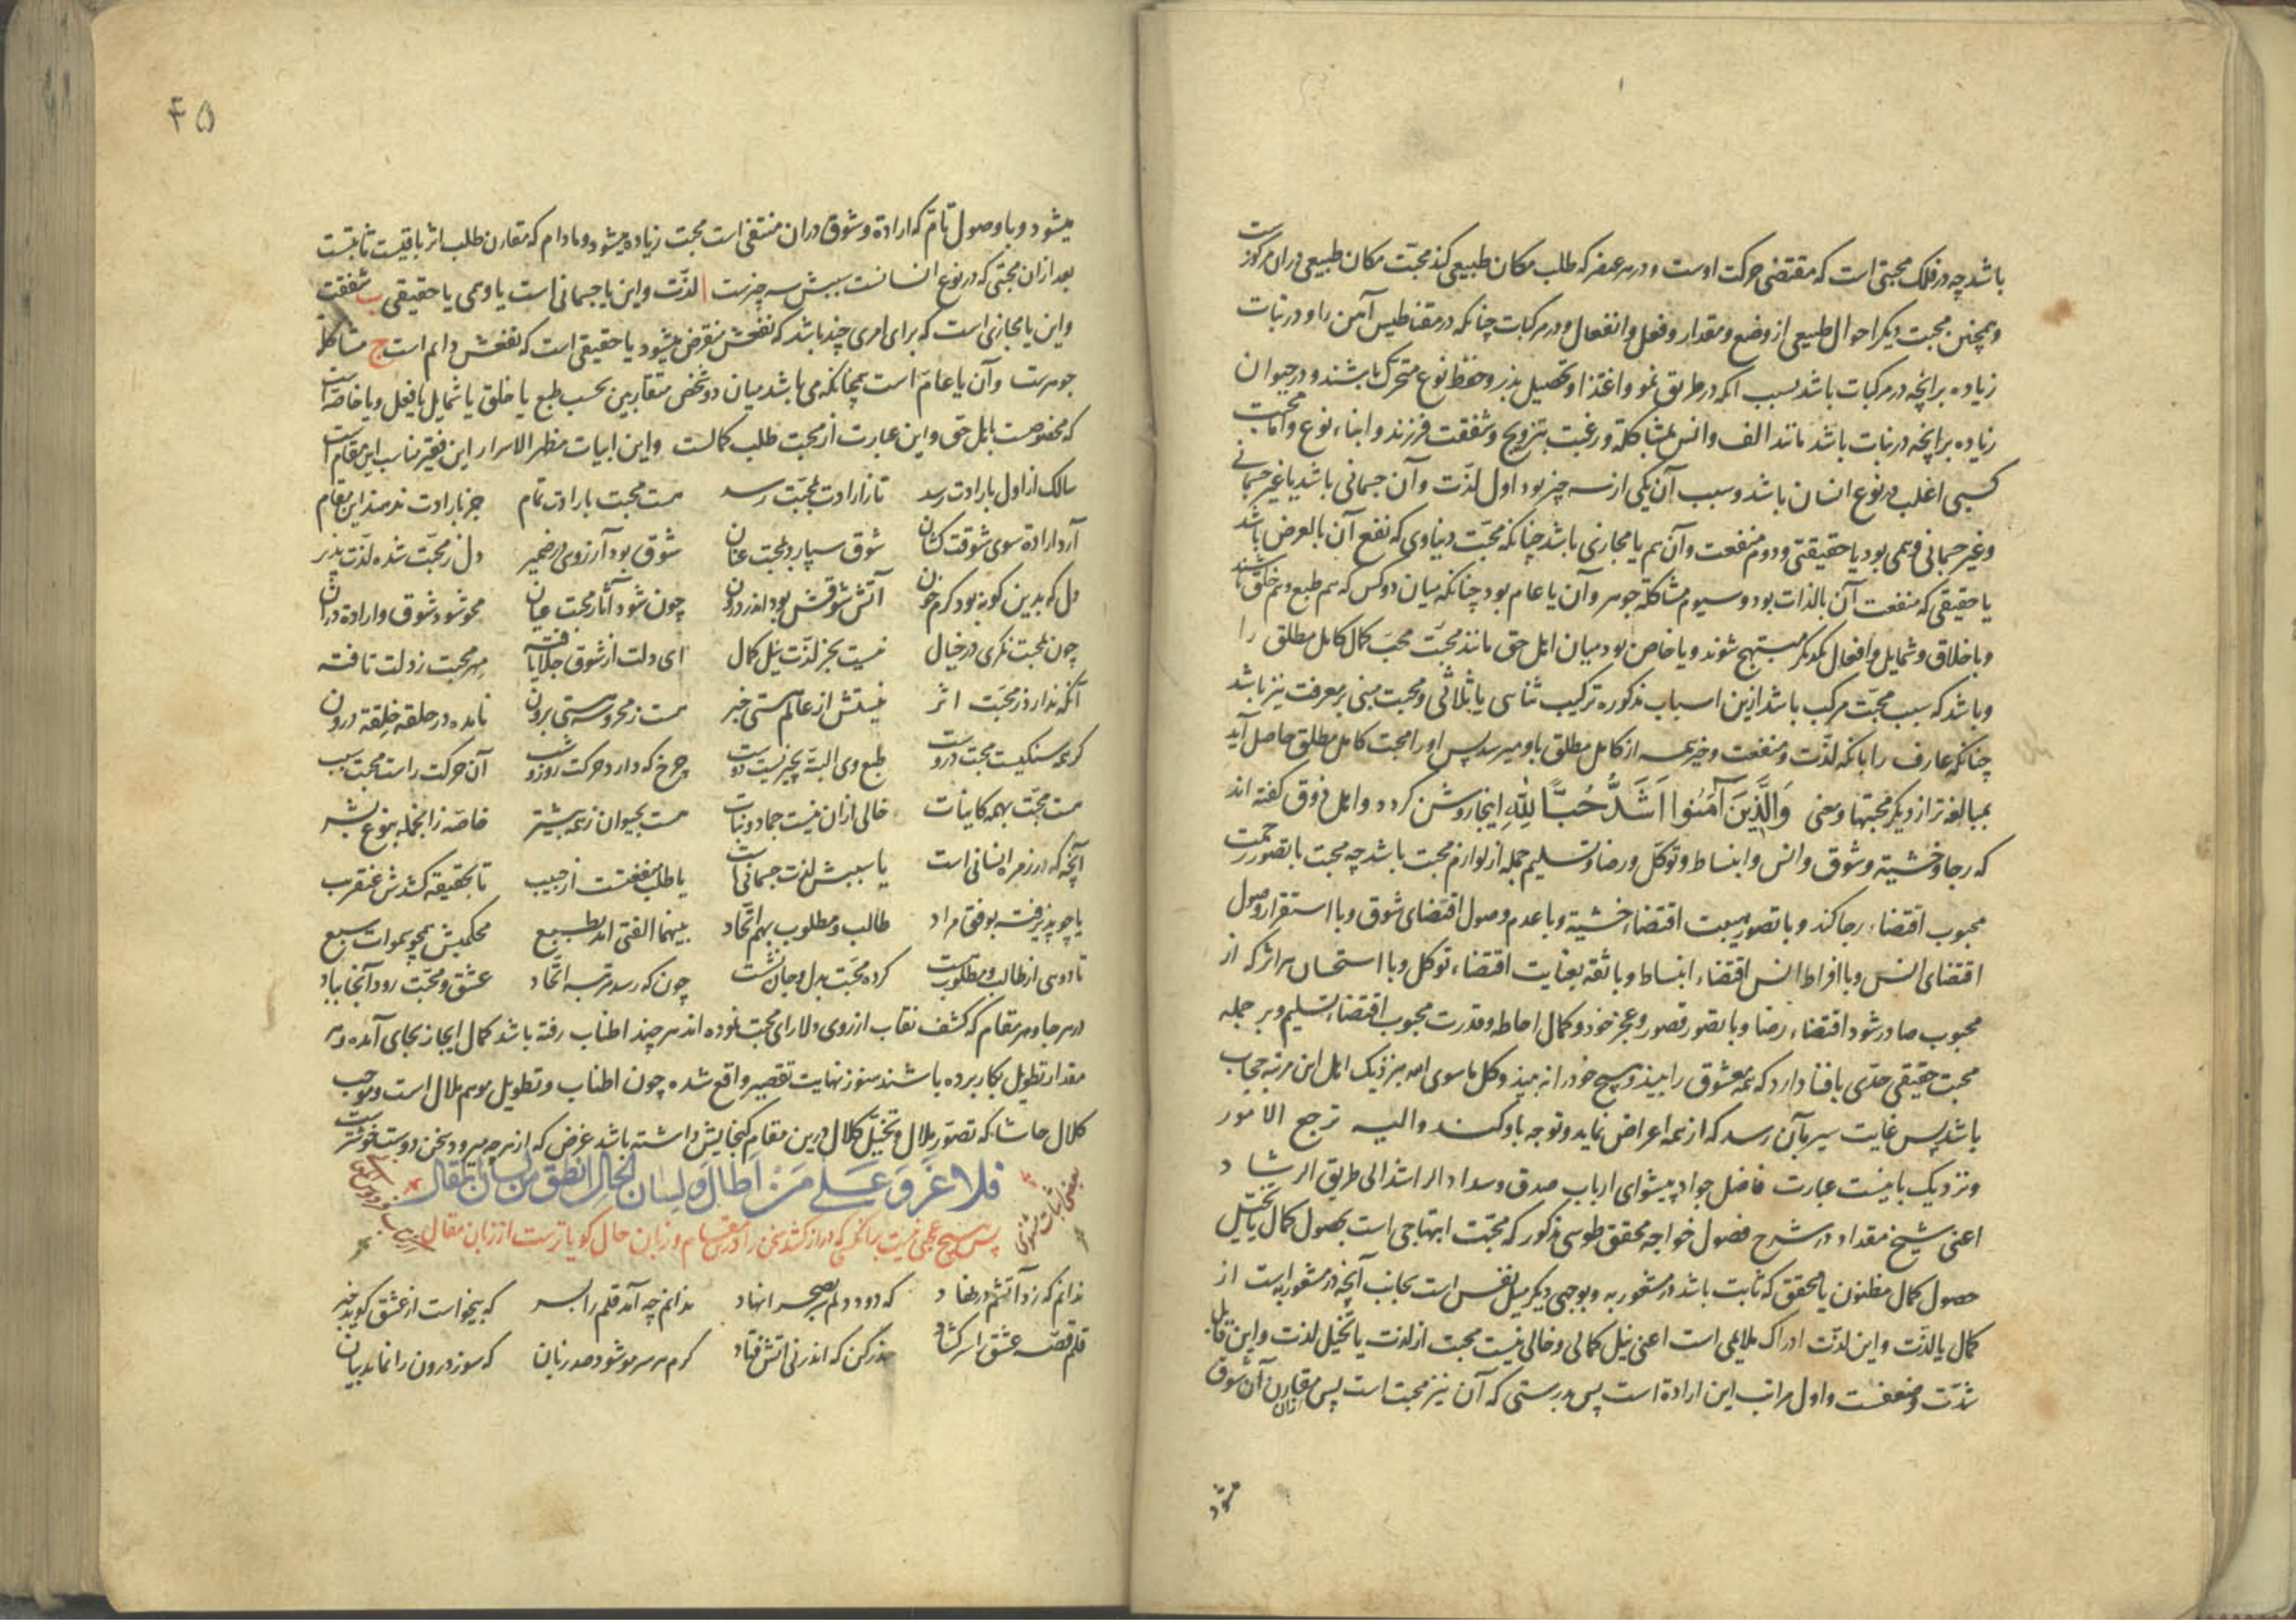 باشد چه در فلک محبتی است که مقتضی حرکت اوست و در هر عنصر که طلب مکان طبیعی کند محبّت مکان طبیعی در ان مرکوز است
و همچنین محبت دیگر احوال طبیعی از وضع و مقدار و فعل و انفعال و در مرکبات چنانکه در مقناطیس آهن را و در نبات
زیاده بر انچه در مرکبات باشد بسبب آنکه در طریق نمو و اغتذا و تحصیل بذر و حفظ نوع متحرک باشند و در حیوان
زیاده بر انچه در نبات باشد مانند الف و انس بمشاکلة و رغبت بتزویج و شفقت فرزند و ابناء نوع و اما محبت
کسبی اغلب در نوع انسان باشد و سبب آن یکی از سه چیز بود اول لذّت و آن جسمانی باشد یا غیر جسمانی
و غیر جسمانی وهمی بود یا حقیقتی و دوم منفعت و آن هم یا مجازی باشد چنانکه محبّت دنیاوی که نفع آن بالعرض باشد
یا حقیقی که منفعت آن بالذات بود و سیوم مشاکلة جوهر و آن یا عام بود چنانکه میان دو کس که هم طبع و هم خلق باشند
و باخلاق و شمایل و افعال یکدیگر مبتهج شوند و یا خاص بود میان اهل حق مانند محبّت محبّ کمال کامل مطلق را
و باشد که سبب محبّت مرکب باشد ازین اسباب مذکوره ترکیب ثنائی یا ثلاثی و محبت مبنی بر معرفت نیز باشد
چنانکه عارف را با آنکه لذّت و منفعت و خیر همه از کامل مطلق باو میرسد پس او را محبت کامل مطلق حاصل آید
بمبالغه تر از دیگر محبتها و معنی وَالَّذِينَ آمَنُوا اَشَدُّ حُبًّا لِلّٰهِ اینجا روشن گردد و اهل ذوق گفته اند
که رجا و خشیة و شوق و انس و انبساط و توکل و رضا و تسلیم جمله از لوازم محبت باشد چه محبت با تصور رحمت
محبوب اقتضاء رجا کند و با تصور هیبت اقتضاء خشیة و با عدم وصول اقتضای شوق و با استقرار وصول
اقتضای انس و با افراط انس اقتضاء انبساط و با ثقه بعنایت اقتضاء توکل و با استحسان هر اثر که از
محبوب صادر شود اقتضاء رضا و با تصور قصور و عجز خود و کمال احاطه و قدرت محبوب اقتضاء تسلیم و بر جمله
محبت حقیقی حدّی با فنا دارد که همه معشوق را بیند و هیچ خود را نه بیند و کل ما سوی الله بنزدیک اهل این مرتبه حجاب
باشد پس غایت سیر بآن رسد که از همه اعراض نماید و توجه باو کند و الیه ترجع الامور
و نزدیک باینست عبارت فاضل جواد پیشوای ارباب صدق و سداد الراشد الی طریق الرشاد
اعنی شیخ مقداد در شرح فصول خواجه محقق طوسی مذکور که محبّت ابتهاجی است بحصول کمال یا تخیّل
حصول کمال مظنون یا محقق که ثابت باشد در مشعور به و بوجهی دیگر میل نفس است بجانب آنچه در مشعور به است از
کمال یا لذّت و این لذّت ادراک ملایمی است اعنی نیل کمالی و خالی نیست محبت از لذت یا تخیل لذت و این قابل
شدّت و ضعفست و اول مراتب این ارادة است پس بدرستی که آن نیز محبت است پس مقارن آن شوق
میشود
۴۵
میشود و با وصول تامّ که ارادة و شوق در ان منتفی است محبت زیاده میشود و مادام که مقارن طلب اثر باقیست ثابتست
بعد از ان محبتی که در نوع انسانست سببش سه چیزست ا لذّت و این یا جسمانی است یا وهمی یا حقیقی ب شفقت
و این یا مجازی است که برای امری چند باشد که نفعش منقرض میشود یا حقیقی است که نفعش دایم است ج مشاکلة
جوهرست و آن یا عامّ است همچنانکه می باشد میان دو شخص متقاربین بحسب طبع یا خلق یا شمایل یا فعل و یا خاصّ است
که مخصوصست باهل حق و این عبارت از محبت طلب کمالست و این ابیات مظهر الاسرار این فقیر مناسب این مقام است
سالک از اول بارادت رسد تا ز ارادت بمحبّت رسد هست محبت بارادت تمام جز بارادت ندهند این مقام
آرد ارادة سوی شوقت کشان شوق سپارد بمحبت عنان شوق بود آرزوی در ضمیر دل ز محبّت شده لذّت پذیر
دل که بدین گونه بود گرم خون آتش شوقش بود اندر درون چون شود آثار محبت عیان محو شود شوق و ارادة در ان
چون بمحبت نگری در خیال نیست بجز لذّت نیل کمال ای دلت از شوق جلا یافته مهر محبت ز دلت تافته
آنکه ندارد ز محبّت اثر نیستش از عالم هستی خبر هست ز محروسه هستی برون نامده در حلقه خلقه درون
گر همه سنگیست محبت دروست طبع وی البتّه بچیزیست دوست چرخ که دارد حرکت روز و شب آن حرکت راست محبت سبب
هست محبّت بهمه کاینات خالی از ان نیست جماد و نبات هست بحیوان ز همه بیشتر خاصّه ز انجمله بنوع بشر
آنچه که در زمره انسانی است یا سببش لذت جسمانی است یا طلب منفعتست از حبیب تا بحقیقة کشدش عنقریب
یا چو پذیرفته بوفق مراد طالب و مطلوب بهم اتّحاد بینهما الفتی اند بطبیع محکمیش همچو سموات سبع
تا دوئی از طالب و مطلوب هست کرده محبّت بدل و جان نشست چون که رسد مرتبه اتّحاد عشق و محبّت رود آنجا بباد
در هر جا و هر مقام که کشف نقاب از روی دلارای محبت نموده اند هر چند اطناب رفته باشد کمال ایجاز بجای آمده و هر
مقدار تطویل بکار برده باشند هنوز نهایت تقصیر واقع شده چون اطناب و تطویل موهم ملال است و موجب
کلال حاشا که تصوّر ملال و تخیّل کلال درین مقام گنجایش داشته باشد غرض که از هر چه میرود سخن دوست خوشترست
فلا غَروَ عَلى مَنْ اَطالَ و لِسان الحال انطق من لسان المقال
پس هیچ عجبی نیست بر آنکسی که دراز کشد سخن را درین مقام و زبان حال گویاترست از زبان مقال
ندانم که زد آتشم در نهاد که دود دلم سر بصحرا نهاد ندانم چه آمد قلم را بسر که میخواست از عشق گوید خبر
قلم قصّه عشق را سر گشاد حذر کن که اندر نی آتش فتاد گرم هر سر مو شود صد زبان که سوز درون را نماید بیان